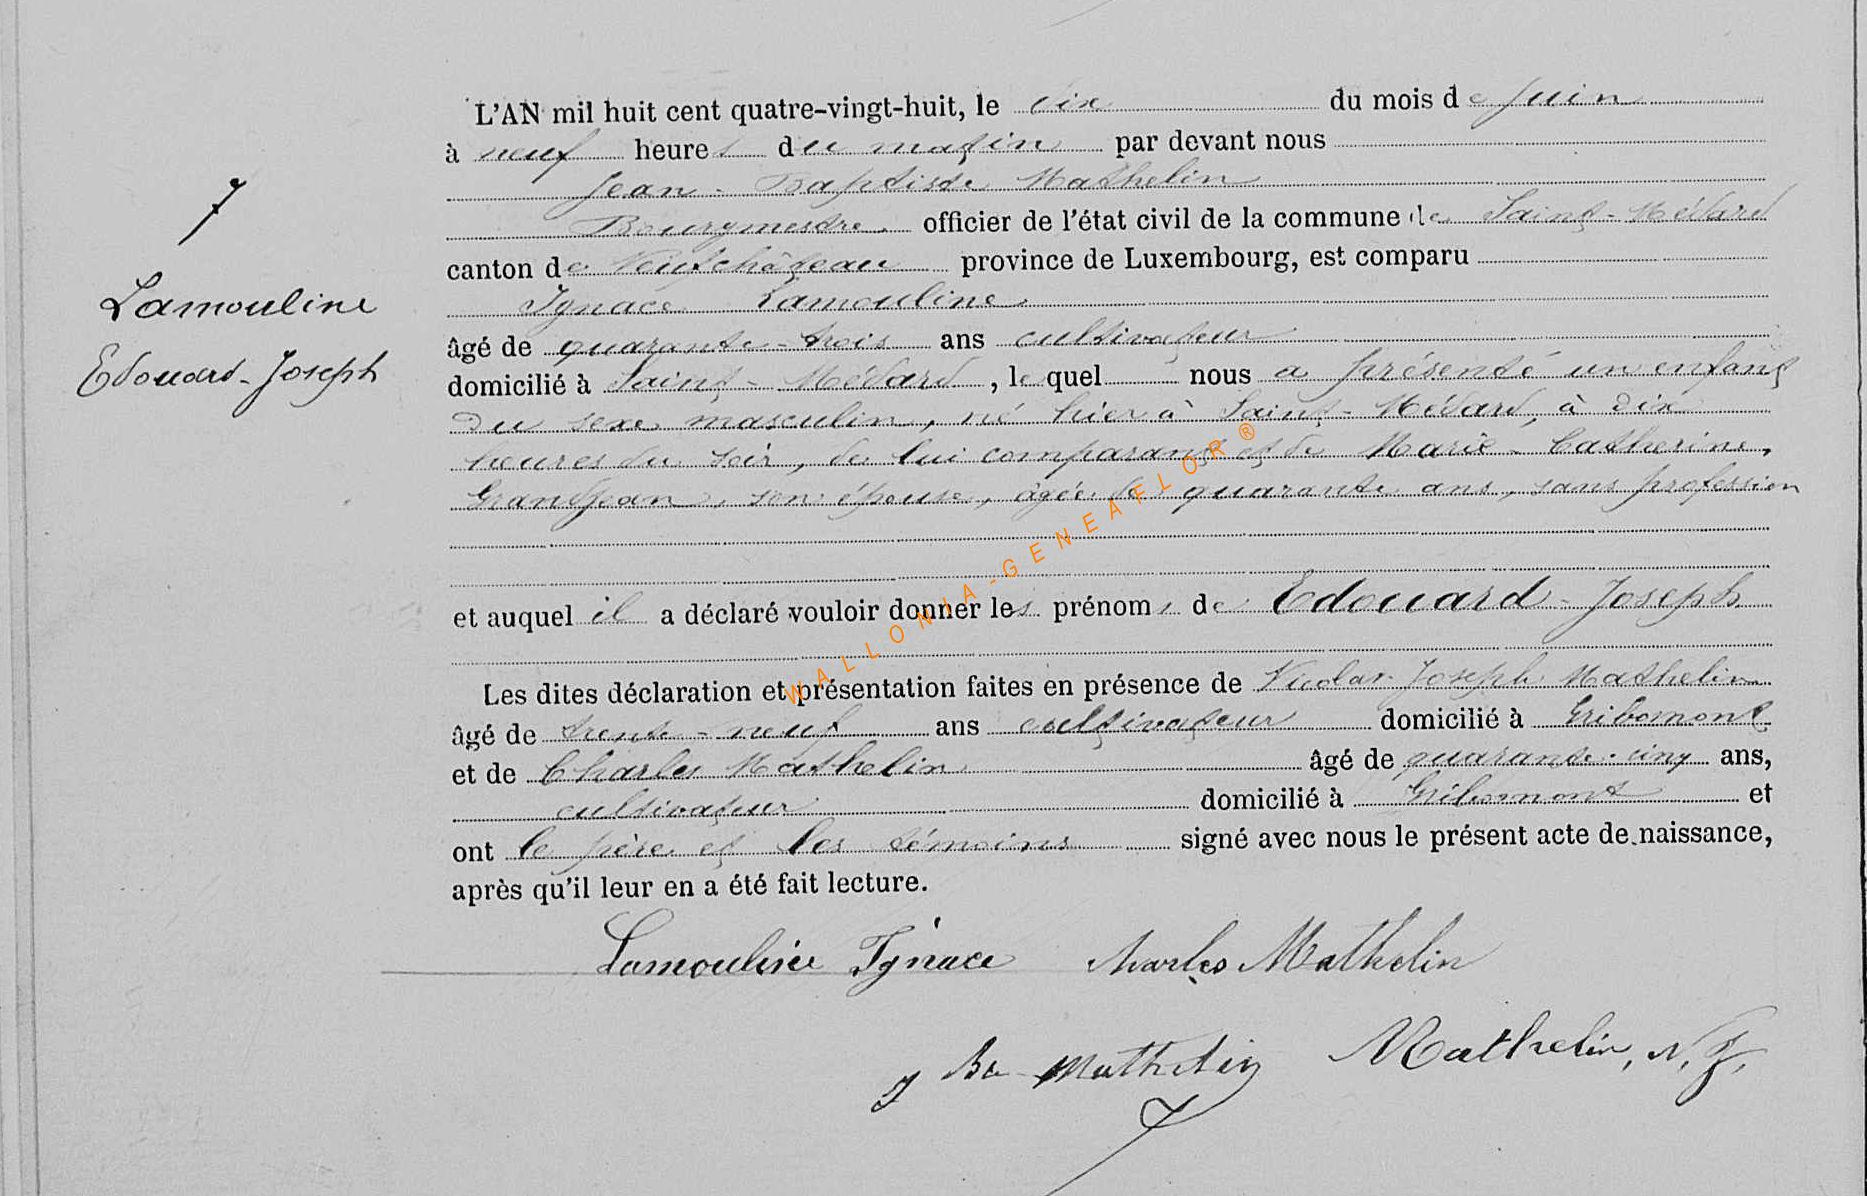 L'AN mil huit cent quatre-vingt-huit, le six du mois de Juin
à neuf heures du matin par devant nous
Jean-Baptiste Mathelin
Bourgmestre officier de l'état civil de la commune de Saint-Médard
canton de Neufchâteau province de Luxembourg, est comparu
Ignace Lamouline
âgé de quarante-trois ans cultivateur
domicilié à Saint-Médard, lequel nous a présenté un enfant
du sexe masculin, né hier à Saint-Médard, à dix
heures du soir, de lui comparant et de Marie-Catherine
Grandjean, son épouse, âgée de quarante ans, sans profession
et auquel il a déclaré vouloir donner les prénoms de Edouard-Joseph
Les dites déclaration et présentation faites en présence de Nicolas-Joseph Mathelin
âgé de trente-neuf ans cultivateur domicilié à Gribomont
et de Charles Mathelin âgé de quarante-cinq ans,
cultivateur domicilié à Gribomont et
ont le père et les témoins signé avec nous le présent acte de naissance,
après qu'il leur en a été fait lecture.
7
Lamouline
Edouard-Joseph
Lamouline Ignace Charles Mathelin
J Ba Mathelin Mathelin, N. J.
WALLONIA-GENEAFLOR ®